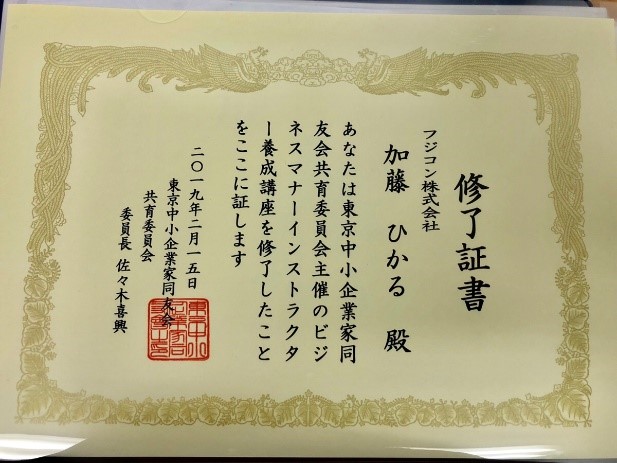 修了証書
フジコン株式会社
加藤 ひかる 殿
あなたは東京中小企業家同
友会共育委員会主催のビジ
ネスマナーインストラクタ
ー養成講座を修了したこと
をここに証します
二〇一九年二月一五日
東京中小企業家同友会
共育委員会
委員長 佐々木喜興